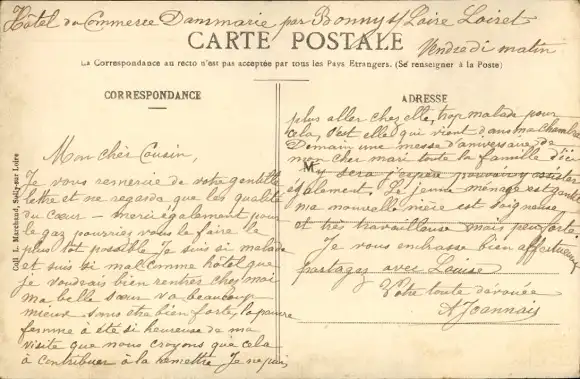 Hôtel du Commerce Dammarie par Bonny s/ Loire Loiret
CARTE POSTALE
Vendredi matin
La Correspondance au recto n'est pas acceptée par tous les Pays Etrangers. (Se renseigner à la Poste)
CORRESPONDANCE
Mon cher Cousin,
Je vous remercie de votre gentille
lettre et ne regarda que les qualité
du cœur — merci également pour
le gaz pourriez vous le faire le
plus tot possible Je suis si malade
et suis si mal comme hôtel que
je voudrais bien rentrer chez moi
Ma belle sœur va beaucoup
mieux sans être bien forte, la pauvre
femme à été si heureuse de ma
visite que nous croyons que cela
à contribuer à la remettre Je ne puis
ADRESSE
plus aller chez elle, trop malade pour
cela, c'est elle qui vient dans ma chambre
Demain une messe d'aniversaire de
mon cher mari toute la famille d'ici
M y sera j'espère pouvoir y assister
également. Le jeune ménage est
ma nouvelle nièce est soigneuse
et très travailleuse mais peu forte.
Je vous embrasse bien
partagez avec Louise
Votre toute dévouée
A Joannais
Coll. L. Marchand, Sully-sur-Loire